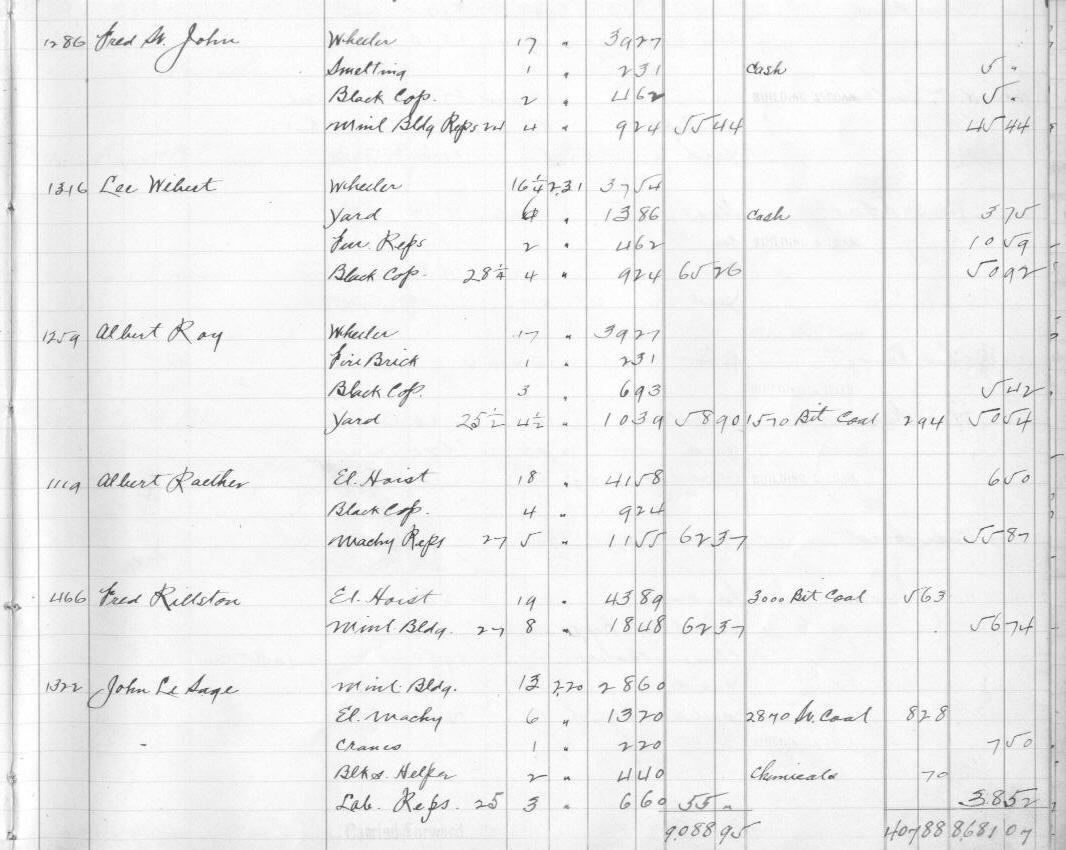 1286 Fred St. John Wheeler 17 " 39 27
Smelting 1 " 2 31 Cash 5 "
Black Cop. 2 " 4 62 5 "
Minl Bldg Reps 24 4 " 9 24 55 44 45 44
1316 Lee Wibert Wheeler 16 1/4 2.31 37 54
Yard 6 " 13 86 Cash 3 75
Fur. Reps 2 " 4 62 10 59
Black Cop. 28 1/4 4 " 9 24 65 26 50 92
1259 Albert Roy Wheeler 17 " 39 27
Fire Brick 1 " 2 31
Black Cop. 3 " 6 93 5 42
Yard 25 1/2 4 1/2 " 10 39 58 90 1570 Bit Coal 2 94 50 54
1119 Albert Raether El. Hoist 18 " 41 58 6 50
Black Cop. 4 " 9 24
Machy Reps 27 5 " 11 55 62 37 55 87
466 Fred Rillston El. Hoist 19 " 43 89 3000 Bit Coal 5 63
Minl Bldg. 27 8 " 18 48 62 37 56 74
1322 John Le Sage Minl. Bldg. 13 2.20 28 60
El. Machy 6 " 13 20 2870 S. Coal 8 28
Cranes 1 " 2 20 7 50
Blks. Helper 2 " 4 40 Chemicals 70
Lab. Reps. 25 3 " 6 60 55 " 38 52
9088 95 407 88 8681 07
Carried Forward